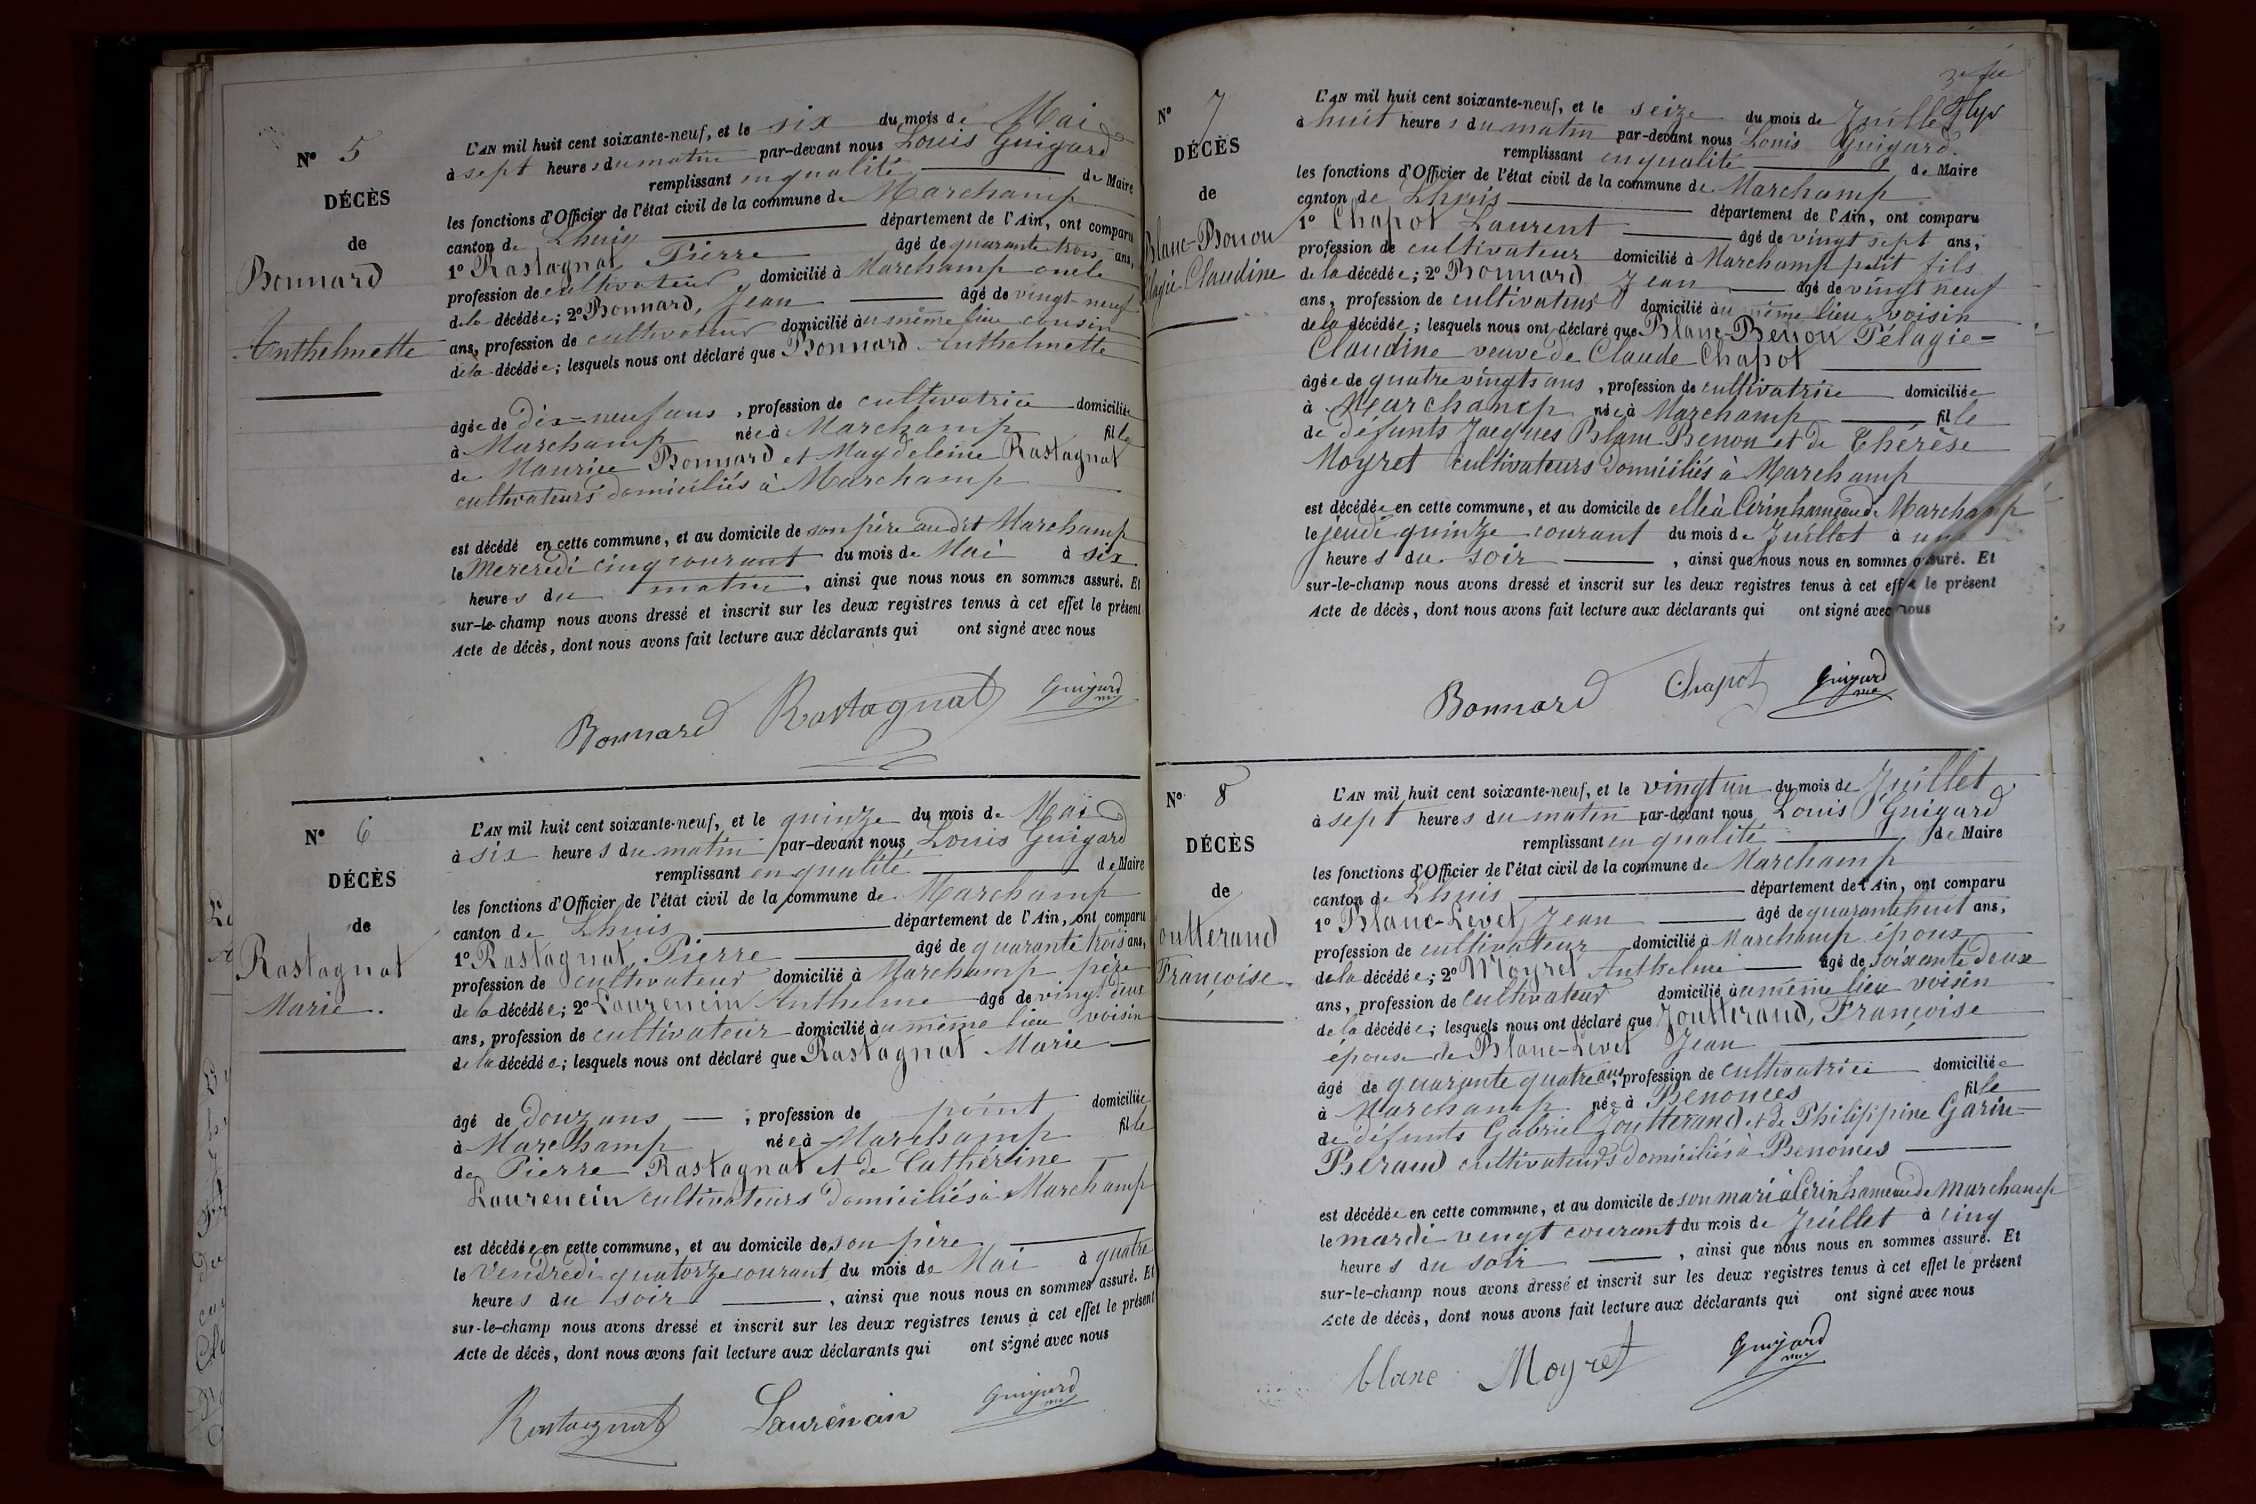 N° 5
DÉCÈS
de
Bonnard
Anthelmette
L'AN mil huit cent soixante-neuf, et le six du mois de Mai
à sept heures du matin par-devant nous Louis Guigard
remplissant en qualité de Maire
les fonctions d'Officier de l'état civil de la commune de Marchamp
canton de Lhuis département de l'Ain, ont comparu
1° Rastagnat Pierre âgé de quarante trois ans,
profession de cultivateur domicilié à Marchamp oncle
de la décédée; 2° Bonnard, Jean âgé de vingt-neuf
ans, profession de cultivateur domicilié au même lieu cousin
de la décédée; lesquels nous ont déclaré que Bonnard Anthelmette
âgée de dix-neuf ans, profession de cultivatrice domiciliée
à Marchamp née à Marchamp fille
de Maurice Bonnard et Magdeleine Rastagnat
cultivateurs domiciliés à Marchamp
est décédé en cette commune, et au domicile de son père audit Marchamp
le Mercredi cinq courant du mois de Mai à six
heures du matin, ainsi que nous nous en sommes assuré. Et
sur-le-champ nous avons dressé et inscrit sur les deux registres tenus à cet effet le présent
Acte de décès, dont nous avons fait lecture aux déclarants qui ont signé avec nous
Bonnard Rastagnat Guigard
N° 6
DÉCÈS
de
Rastagnat
Marie.
L'AN mil huit cent soixante-neuf, et le quinze du mois de Mai
à six heures du matin par-devant nous Louis Guigard
remplissant en qualité de Maire
les fonctions d'Officier de l'état civil de la commune de Marchamp
canton de Lhuis département de l'Ain, ont comparu
1° Rastagnat Pierre âgé de quarante trois ans,
profession de cultivateur domicilié à Marchamp père
de la décédée; 2° Laurencin Anthelme âgé de vingt deux
ans, profession de cultivateur domicilié au même lieu voisin
de la décédée; lesquels nous ont déclaré que Rastagnat Marie
âgé de douz ans, profession de point domiciliée
à Marchamp née à Marchamp fille
de Pierre Rastagnat et de Cathérine
Laurencin cultivateurs domiciliés à Marchamp
est décédée en cette commune, et au domicile de son père
le Vendredi quatorze courant du mois de Mai à quatre
heures du soir, ainsi que nous nous en sommes assuré. Et
sur-le-champ nous avons dressé et inscrit sur les deux registres tenus à cet effet le présent
Acte de décès, dont nous avons fait lecture aux déclarants qui ont signé avec nous
Rastagnat Laurencin Guigard
N° 7
DÉCÈS
de
Blanc-Benon
Claudine
L'AN mil huit cent soixante-neuf, et le seize du mois de Juillet
à huit heures du matin par-devant nous Louis Guigard
remplissant en qualité de Maire
les fonctions d'Officier de l'état civil de la commune de Marchamp
canton de Lhuis département de l'Ain, ont comparu
1° Chapot Laurent âgé de vingt sept ans,
profession de cultivateur domicilié à Marchamp petit fils
de la décédée; 2° Bonnard Jean âgé de vingt neuf
ans, profession de cultivateur domicilié au même lieu voisin
de la décédée; lesquels nous ont déclaré que Blanc-Benon Pélagie-
Claudine veuve de Claude Chapot
âgée de quatre vingts ans, profession de cultivatrice domiciliée
à Marchamp née à Marchamp fille
de défunts Jacques Blanc Benon et de Thérèse
Moyret cultivateurs domiciliés à Marchamp
est décédée en cette commune, et au domicile de elle à Cerin hameau de Marchamp
le jeudi quinze courant du mois de Juillet à une
heures du soir, ainsi que nous nous en sommes assuré. Et
sur-le-champ nous avons dressé et inscrit sur les deux registres tenus à cet effet le présent
Acte de décès, dont nous avons fait lecture aux déclarants qui ont signé avec nous
Bonnard Chapot Guigard
N° 8
DÉCÈS
de
outterand
Françoise
L'AN mil huit cent soixante-neuf, et le vingt un du mois de Juillet
à sept heures du matin par-devant nous Louis Guigard
remplissant en qualité de Maire
les fonctions d'Officier de l'état civil de la commune de Marchamp
canton de Lhuis département de l'Ain, ont comparu
1° Blanc-Levet Jean âgé de quarante huit ans,
profession de cultivateur domicilié à Marchamp époux
de la décédée; 2° Moyret Anthelme âgé de soixante deux
ans, profession de cultivateur domicilié au même lieu voisin
de la décédée; lesquels nous ont déclaré que Joutterand, Françoise
épouse de Blanc-Levet Jean
âgé de quarante quatre ans, profession de cultivatrice domiciliée
à Marchamp née à Benonces fille
de défunts Gabriel Joutterand et de Philippine Garin-
Beraud cultivateurs domiciliés à Benonces
est décédée en cette commune, et au domicile de son mari à Cerin hameau de Marchamp
le mardi vingt courant du mois de Juillet à cinq
heures du soir, ainsi que nous nous en sommes assuré. Et
sur-le-champ nous avons dressé et inscrit sur les deux registres tenus à cet effet le présent
Acte de décès, dont nous avons fait lecture aux déclarants qui ont signé avec nous
blanc Moyret Guigard